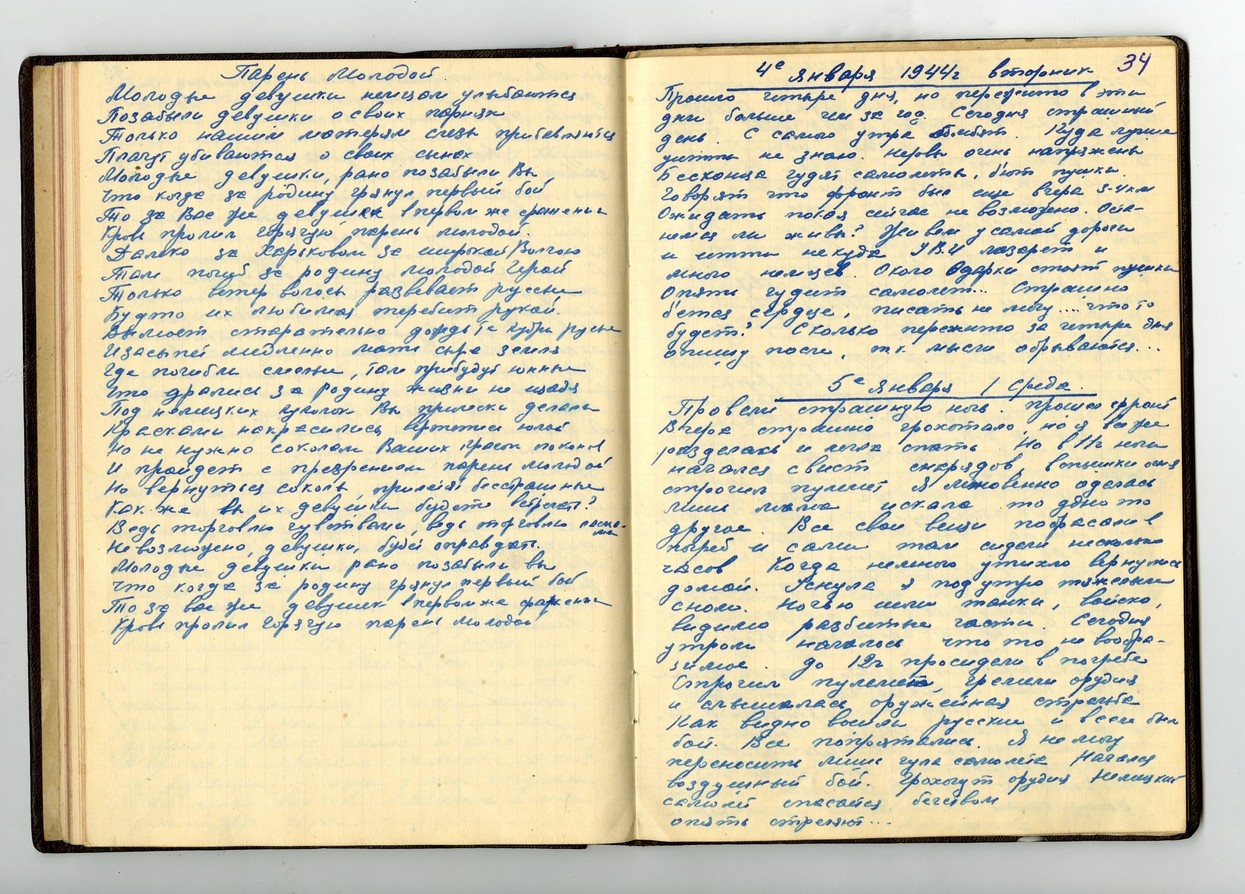 Парень Молодой.
Молодые девушки немцам улыбаются
Позабыли девушки о своих парнях
Только нашим матерям слезы прибавляются
Плачут убиваются о своих сынах
Молодые девушки, рано позабыли Вы
Что когда за родину грянул первый бой
То за Вас же девушки в первом же сражении
Кровь пролил горячую парень молодой.
Далеко за Харьковом за широкой Волгою
Там погиб за родину молодой Герой
Только ветер волосы развевает русые
Будто их любимая теребит рукой.
Вымоет старательно дождь те кудри русые
И засыпет медленно мать сыра земля
Где погибли смелые, там прибудут юные
Что дрались за родину жизни не щадя
Под немецких куколок Вы прически делали
Красками накрасились, вертитесь юлой
Но не нужно соколам Ваших краск локонов
И пройдет с презрением парень молодой
Но вернуться соколы, прилетят бесстрашные
Как же вы их девушки будете встречать?
Ведь торговлю чувствами, ведь торговлю
Невозможно, девушки, будет оправдать.
Молодые девушки рано позабыли вы
Что когда за родину грянул первый бой
То за вас же девушки в первом же сражении
Кровь пролил горячую парень молодой
34
4е января 1944г вторник
Прошло четыре дня, но пережито в эти
дни больше чем за год. Сегодня страшный
день. С самого утра бомбят. Куда лучше
уйти не знаю. Нервы очень напряжены
Бесконца гудят самолеты, бьют пушки.
Говорят что фронт был еще вчера 3-4 км
Ожидать покоя сейчас не возможно. Оста-
немся ли живы? Живем у самой дороги
и итти некуда У В.И лазарет и
много немцев. Около Одарки стоят пушки
Опять гудит самолет... Страшно
бьется сердце, писать не могу .... что то
будет? Сколько пережито за четыре дня
опишу после, т.к. мысли обрываются...
5е января / Среда.
Провели страшную ночь. Прошел фронт
Вчера страшно грохотало, но я все же
разделась и легла спать Но в 11ч ночи
начался свист снарядов, вспышки огня
строчил пулемет Я мгновенно оделась
лишь мама искала то одно то
другое. Все свои вещи побросали в
погреб и сами там сидели несколько
часов Когда немного утихло вернулись
домой. Уснула я под утро тяжелым
сном. Ночью шли танки, войско,
видимо разбитые части. Сегодня
утром началось что то не вообра-
зимое. До 12ч просидели в погребе
Строчил пулемет, гремели орудия
и слышалась оружейная стрельба
Как видно вошли русские и всеми был
бой. Все попрятались. Я не могу
переносить лишь гула самолета Начался
воздушный бой. Грохочут орудия Немецкий
самолет спасается бегством
опять стреляют...